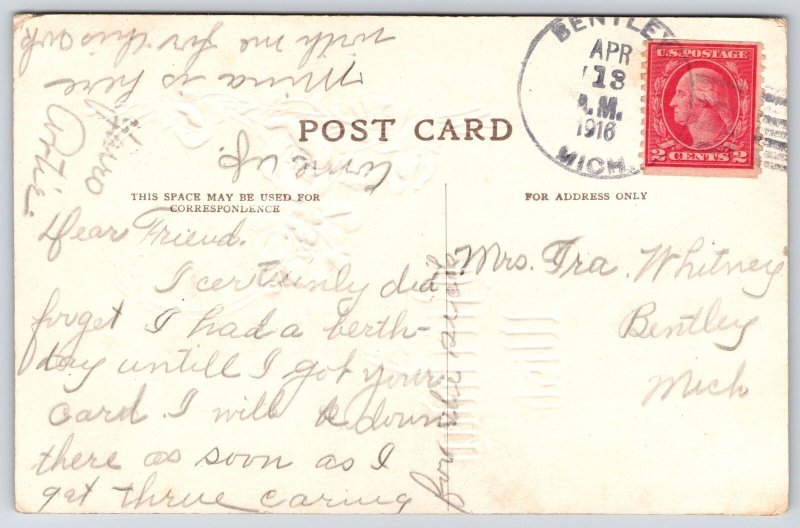 BENTLEY
APR
13
A.M.
1916
MICH.
U.S. POSTAGE
2 CENTS 2
POST CARD
THIS SPACE MAY BE USED FOR
CORRESPONDENCE
FOR ADDRESS ONLY
Dear Friend.
I certainly did
forget I had a berth-
day untill I got your
card I will be down
there as soon as I
get thrue caring
for the
come up.
Mina is here
with me for this wk
Mrs. Ira. Whitney
Bentley
Mich